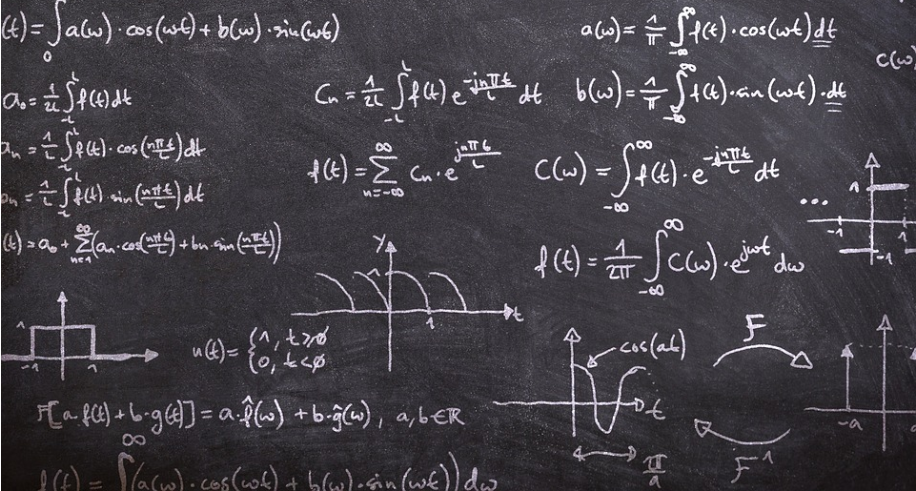 (t) = ∫₀ a(ω)·cos(ωt) + b(ω)·sin(ωt)
a(ω) = 1/π ∫_{-∞}^{∞} f(t)·cos(ωt) dt
C(ω)
a₀ = 1/2L ∫_{-L}^{L} f(t) dt
Cn = 1/2L ∫_{-L}^{L} f(t) e^{-jnπt/L} dt
b(ω) = 1/π ∫_{-∞}^{∞} f(t)·sin(ωt)·dt
an = 1/L ∫_{-L}^{L} f(t)·cos(nπt/L) dt
f(t) = ∑_{n=-∞}^{∞} Cn·e^{jnπt/L}
C(ω) = ∫_{-∞}^{∞} f(t)·e^{-jnπt/L} dt
n = 1/L ∫_{-L}^{L} f(t)·sin(nπt/L) dt
1
...
-1 1
-1
(t) = a₀ + ∑_{n=1}^{∞} (an·cos(nπt/L) + bn·sin(nπt/L))
f(t) = 1/2π ∫_{-∞}^{∞} C(ω)·e^{jωt} dω
y
1
1 t
1
-1 1
u(t) = {1, t≥0
0, t<0
cos(at)
t
π/a
F
F⁻¹
-a
F[a·f(t) + b·g(t)] = a·f̂(ω) + b·ĝ(ω), a, b ∈ ℝ
f(t) = ∫^{∞} (a(ω)·cos(ωt) + b(ω)·sin(ωt)) dω